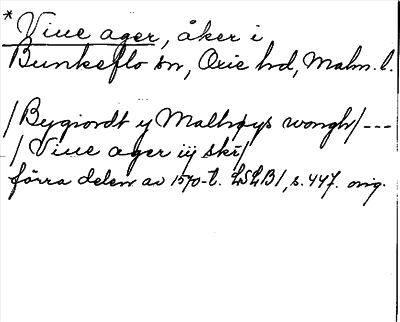 * Viue ager, åker i
Bunkeflo sn, Oxie hd, Malm. l.
/Bygiordt y Malhøys wongh/ ---
/Viue ager iij skr/
förra delen av 1570-t. LSLB1, s. 447. orig.